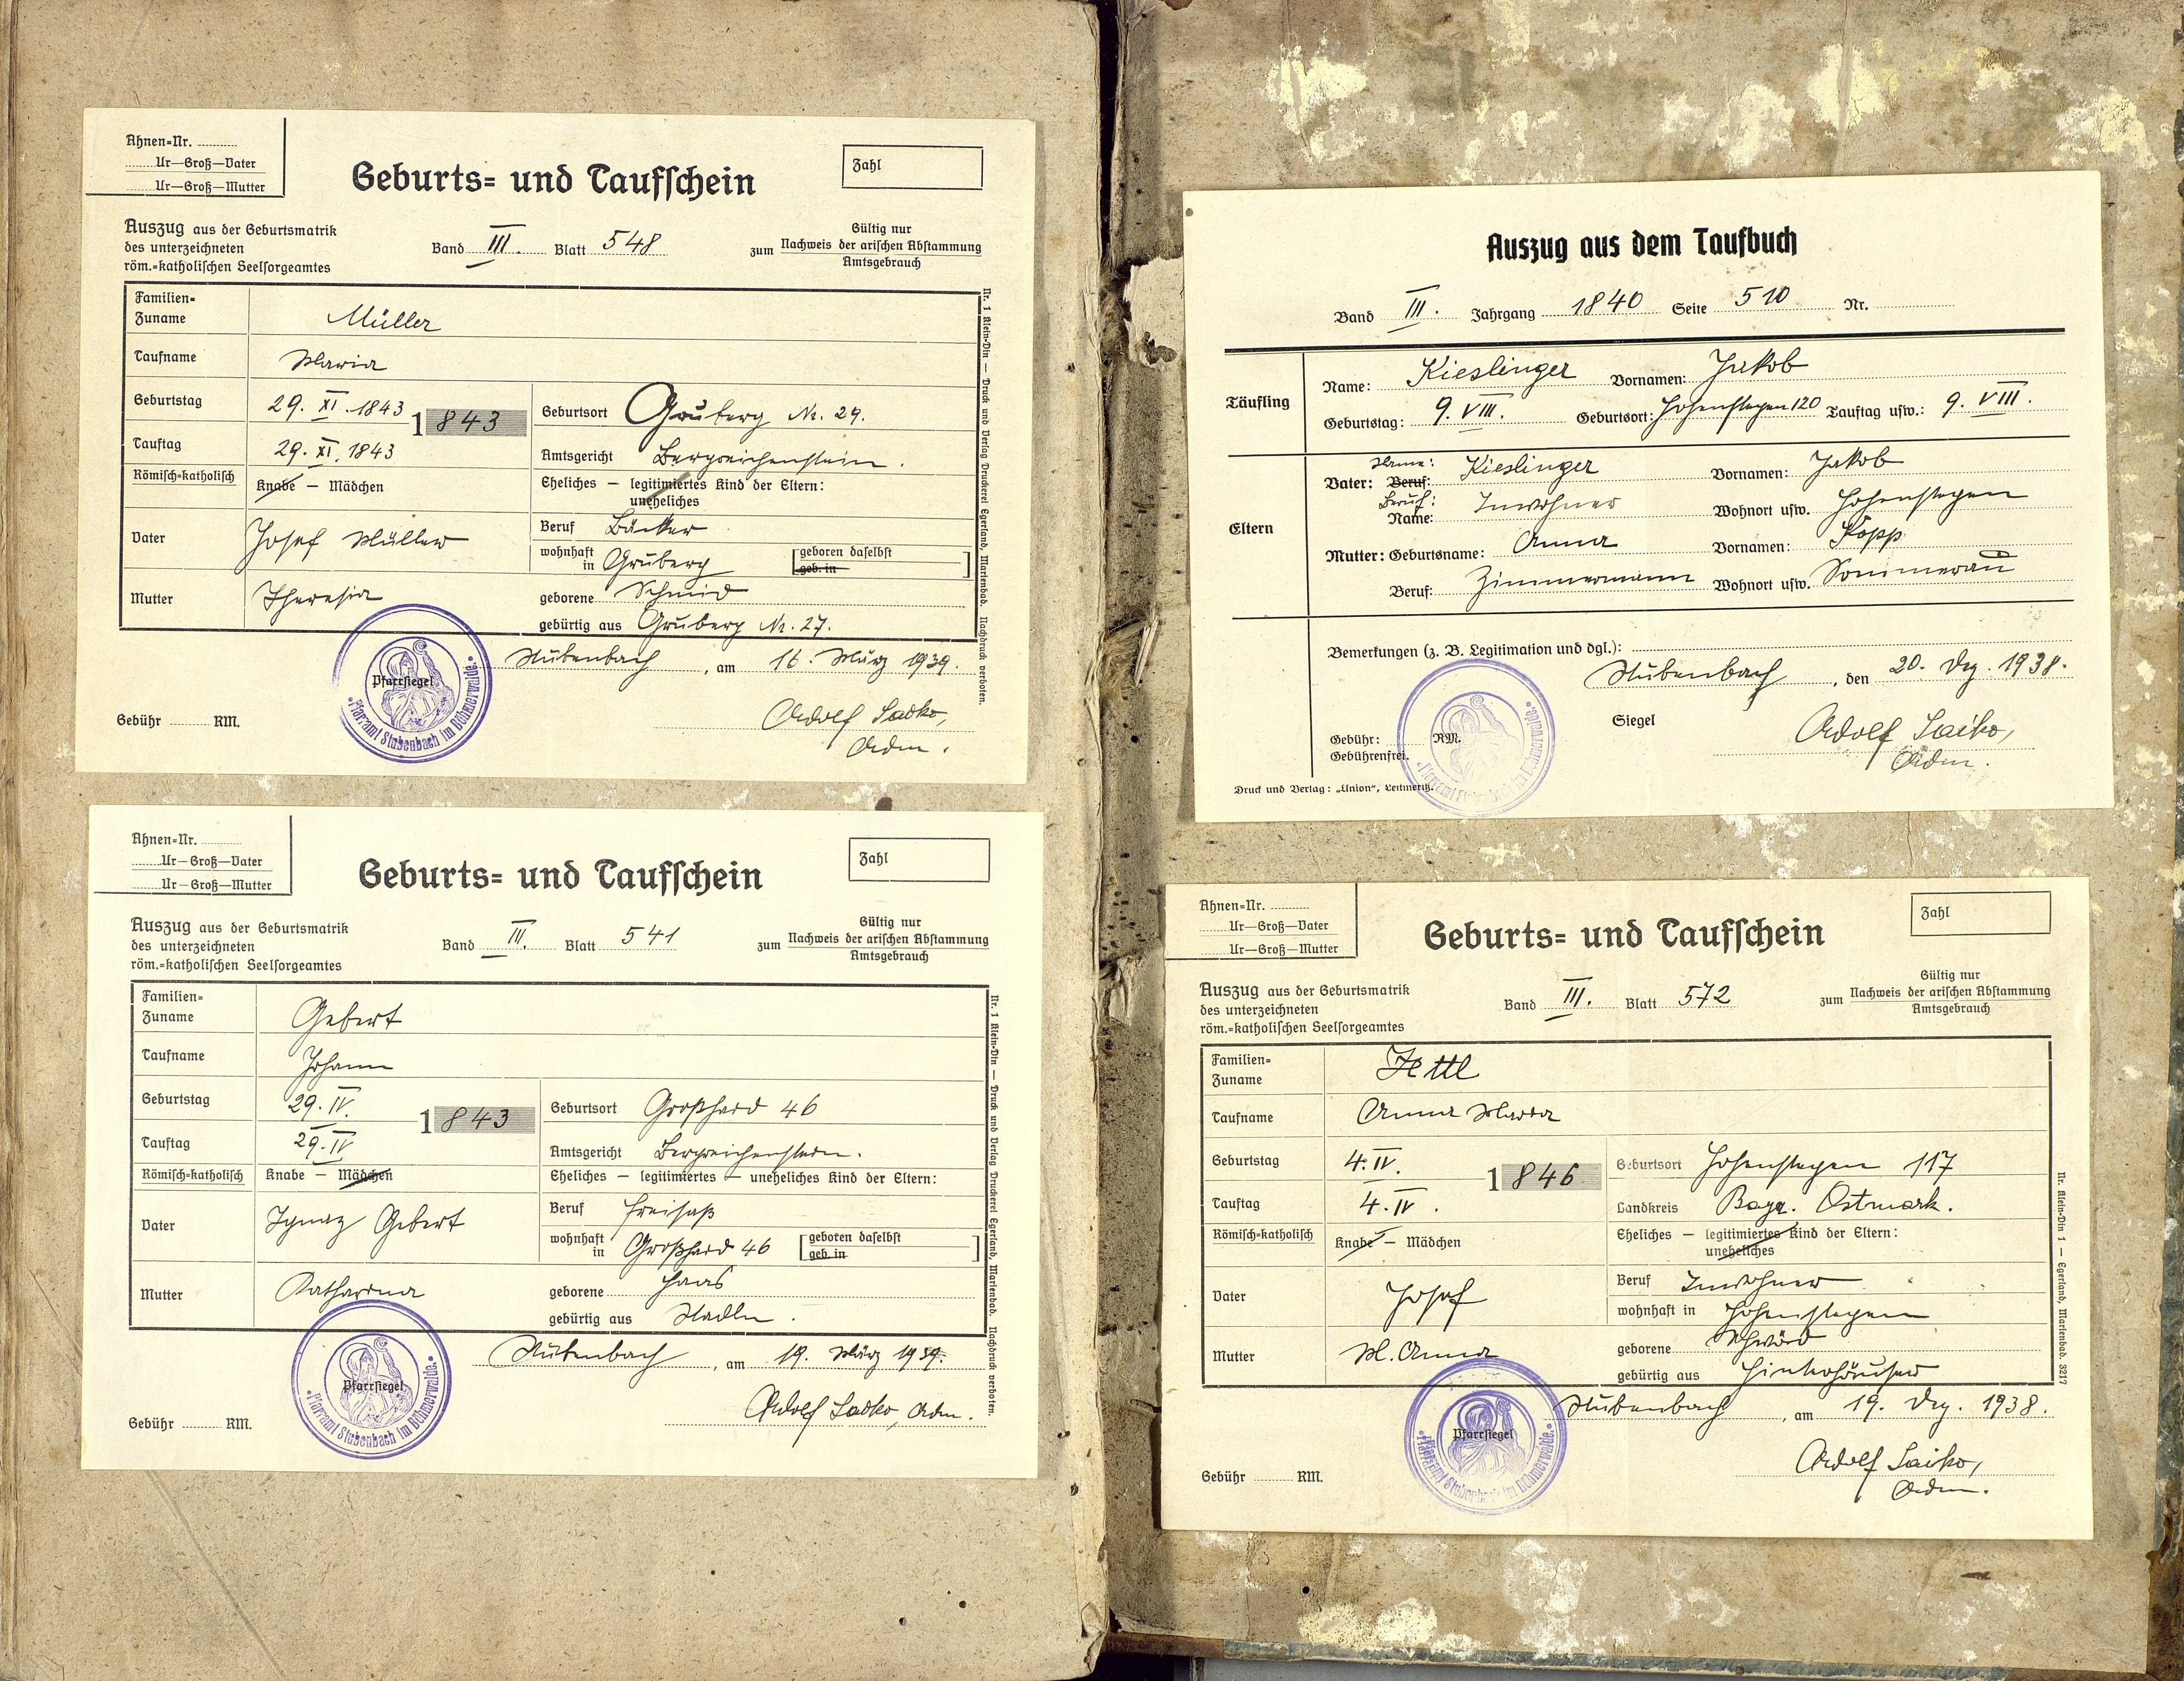 Ahnen=Nr. ..........
.......Ur—Groß—Vater
.......Ur—Groß—Mutter
Geburts= und Taufschein
Zahl
Auszug aus der Geburtsmatrik
des unterzeichneten
röm.=katholischen Seelsorgeamtes
Band III. Blatt 548
Gültig nur
zum Nachweis der arischen Abstammung
Amtsgebrauch
Familien=
Zuname Müller
Taufname Maria
Geburtstag 29. XI. 1843 1843 Geburtsort Gruberg Nr. 29.
Tauftag 29. XI. 1843 Amtsgericht Bergreichenstein.
Römisch=katholisch Knabe — Mädchen Eheliches — legitimiertes Kind der Eltern:
uneheliches
Vater Josef Müller Beruf Bäcker
wohnhaft in Gruberg [geboren daselbst
geb. in]
Mutter Theresia geborene Schmid
gebürtig aus Gruberg Nr. 27.
Stubenbach, am 16. März 1939.
Pfarrsiegel
Pfarramt Stubenbach im Böhmerwalde.
Gebühr ........ RM.
Adolf Saiko,
Adm.
Nr. 1 Klein=Din — Druck und Verlag Druckerei Egerland, Marienbad. Nachdruck verboten.
Ahnen=Nr. ..........
.......Ur—Groß—Vater
.......Ur—Groß—Mutter
Geburts= und Taufschein
Zahl
Auszug aus der Geburtsmatrik
des unterzeichneten
röm.=katholischen Seelsorgeamtes
Band III. Blatt 541
Gültig nur
zum Nachweis der arischen Abstammung
Amtsgebrauch
Familien=
Zuname Gebert
Taufname Johann
Geburtstag 29. IV. 1843 Geburtsort Großhaid 46
Tauftag 29. IV Amtsgericht Bergreichenstein.
Römisch=katholisch Knabe — Mädchen Eheliches — legitimiertes — uneheliches Kind der Eltern:
Vater Ignaz Gebert Beruf Freisaß
wohnhaft in Großhaid 46 [geboten daselbst
geb. in]
Mutter Katharina geborene Haas
gebürtig aus Stadln.
Stubenbach, am 19. März 1939.
Pfarrsiegel
Pfarramt Stubenbach im Böhmerwalde.
Gebühr ........ RM.
Adolf Saiko, Adm.
Nr. 1 Klein=Din — Druck und Verlag Druckerei Egerland, Marienbad. Nachdruck verboten.
Auszug aus dem Taufbuch
Band III. Jahrgang 1840 Seite 510 Nr.
Täufling
Name: Kieslinger Vornamen: Jakob
Geburtstag: 9. VIII. Geburtsort: Hohenstegen 120 Tauftag usw.: 9. VIII.
Eltern
Name:
Vater: Beruf: Kieslinger Vornamen: Jakob
Beruf:
Name: Inwohner Wohnort usw. Hohenstegen
Mutter: Geburtsname: Anna Vornamen: Kopp
Beruf: Zimmermann Wohnort usw. Sommerau
Bemerkungen (z. B. Legitimation und dgl.):
Stubenbach, den 20. Dez. 1938.
Siegel
Gebühr: RM.
Gebührenfrei.
Adolf Saiko,
Adm.
Pfarramt Stubenbach im Böhmerwalde.
Druck und Verlag: „Union“, Leitmeritz.
Ahnen=Nr. ..........
.......Ur—Groß—Vater
.......Ur—Groß—Mutter
Geburts= und Taufschein
Zahl
Auszug aus der Geburtsmatrik
des unterzeichneten
röm.=katholischen Seelsorgeamtes
Band III. Blatt 572
Gültig nur
zum Nachweis der arischen Abstammung
Amtsgebrauch
Familien=
Zuname Zettl
Taufname Anna Maria
Geburtstag 4. IV. 1846 Geburtsort Hohenstegen 117
Tauftag 4. IV. Landkreis Bayr. Ostmark.
Römisch=katholisch Knabe — Mädchen Eheliches — legitimiertes Kind der Eltern:
uneheliches
Vater Josef Beruf Inwohner
wohnhaft in Hohenstegen
Mutter M. Anna geborene
gebürtig aus Hinterhäuser
Stubenbach, am 19. Dez. 1938.
Pfarrsiegel
Pfarramt Stubenbach im Böhmerwalde.
Gebühr ........ RM.
Adolf Saiko,
Adm.
Nr. Klein=Din 1 — Egerland, Marienbad. 3217